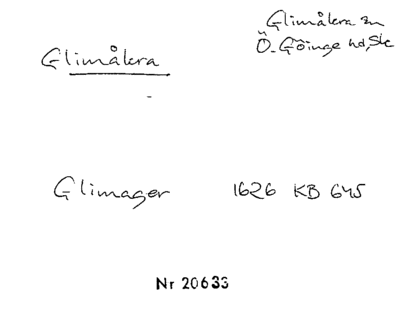 Glimåkra sn
Ö. Göinge hd, Sk
Glimåkra
Glimager 1626 KB 645
Nr 20633